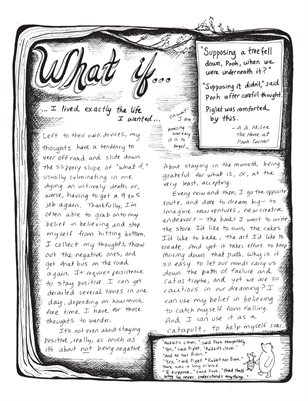 What if...
... I lived exactly the life
I wanted...
"Supposing a tree fell
down, Pooh, when we
were underneath it?"
"Supposing it didn't," said
Pooh after careful thought.
Piglet was comforted
by this.
- A.A. Milne
The House at
Pooh Corner
Left to their own devices, my
thoughts have a tendency to
veer off road and slide down
the slippery slope of "what if,"
usually culminating in me
dying an untimely death or,
worse, having to get a 9 to 5
job again. Thankfully, I'm
often able to grab onto my
belief in believing and stop
myself from hitting bottom.
I collect my thoughts, throw
out the negative ones, and
get that bus on the road
again. It requires persistence
to stay positive. I can get
derailed several times in one
day, depending on how much
free time I have for those
thoughts to wander.
It's not even about staying
positive, really, as much as
it's about not being negative.
About staying in the moment, being
grateful for what is, or, at the
very least, accepting.
Every now and then, I go the opposite
route, and dare to dream big - to
imagine new ventures, new creative
endeavors - the books I want to write,
the store I'd like to own, the cakes
I'd like to bake, the art I'd like to
create. And yet it takes effort to keep
moving down that path. Why is it
so easy to let our minds carry us
down the path of failure and
catastrophe, and yet we are so
cautious in our dreaming? I
can use my belief in believing
to catch myself from falling.
And I can use it as a
catapult, to help myself soar.
"Rabbit's clever," said Pooh thoughtfully.
"Yes," said Piglet, "Rabbit's clever."
"And he has Brain."
"Yes," said Piglet, "Rabbit has Brain."
There was a long silence.
"I suppose," said Pooh, "that that's
why he never understands anything."